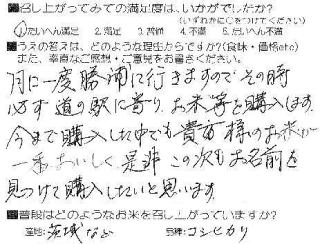 ■召し上がってみての満足度は、いかがでしたか?
(いずれかに○をつけてください)
①たいへん満足 2.満足 3.普通 4.不満 5.たいへん不満
■うえの答えは、どのような理由からですか?(食味・価格etc)
また、率直なご感想・ご意見をお書きください。
月に一度勝浦に行きますのでその時
必ず道の駅に寄り、お米等を購入します。
今まで購入した中でも貴方様のお米が
一番おいしく是非この次もお名前を
見つけて購入したいと思います。
■普段はどのようなお米を召し上がっていますか?
産地:茨城など 品種:コシヒカリ